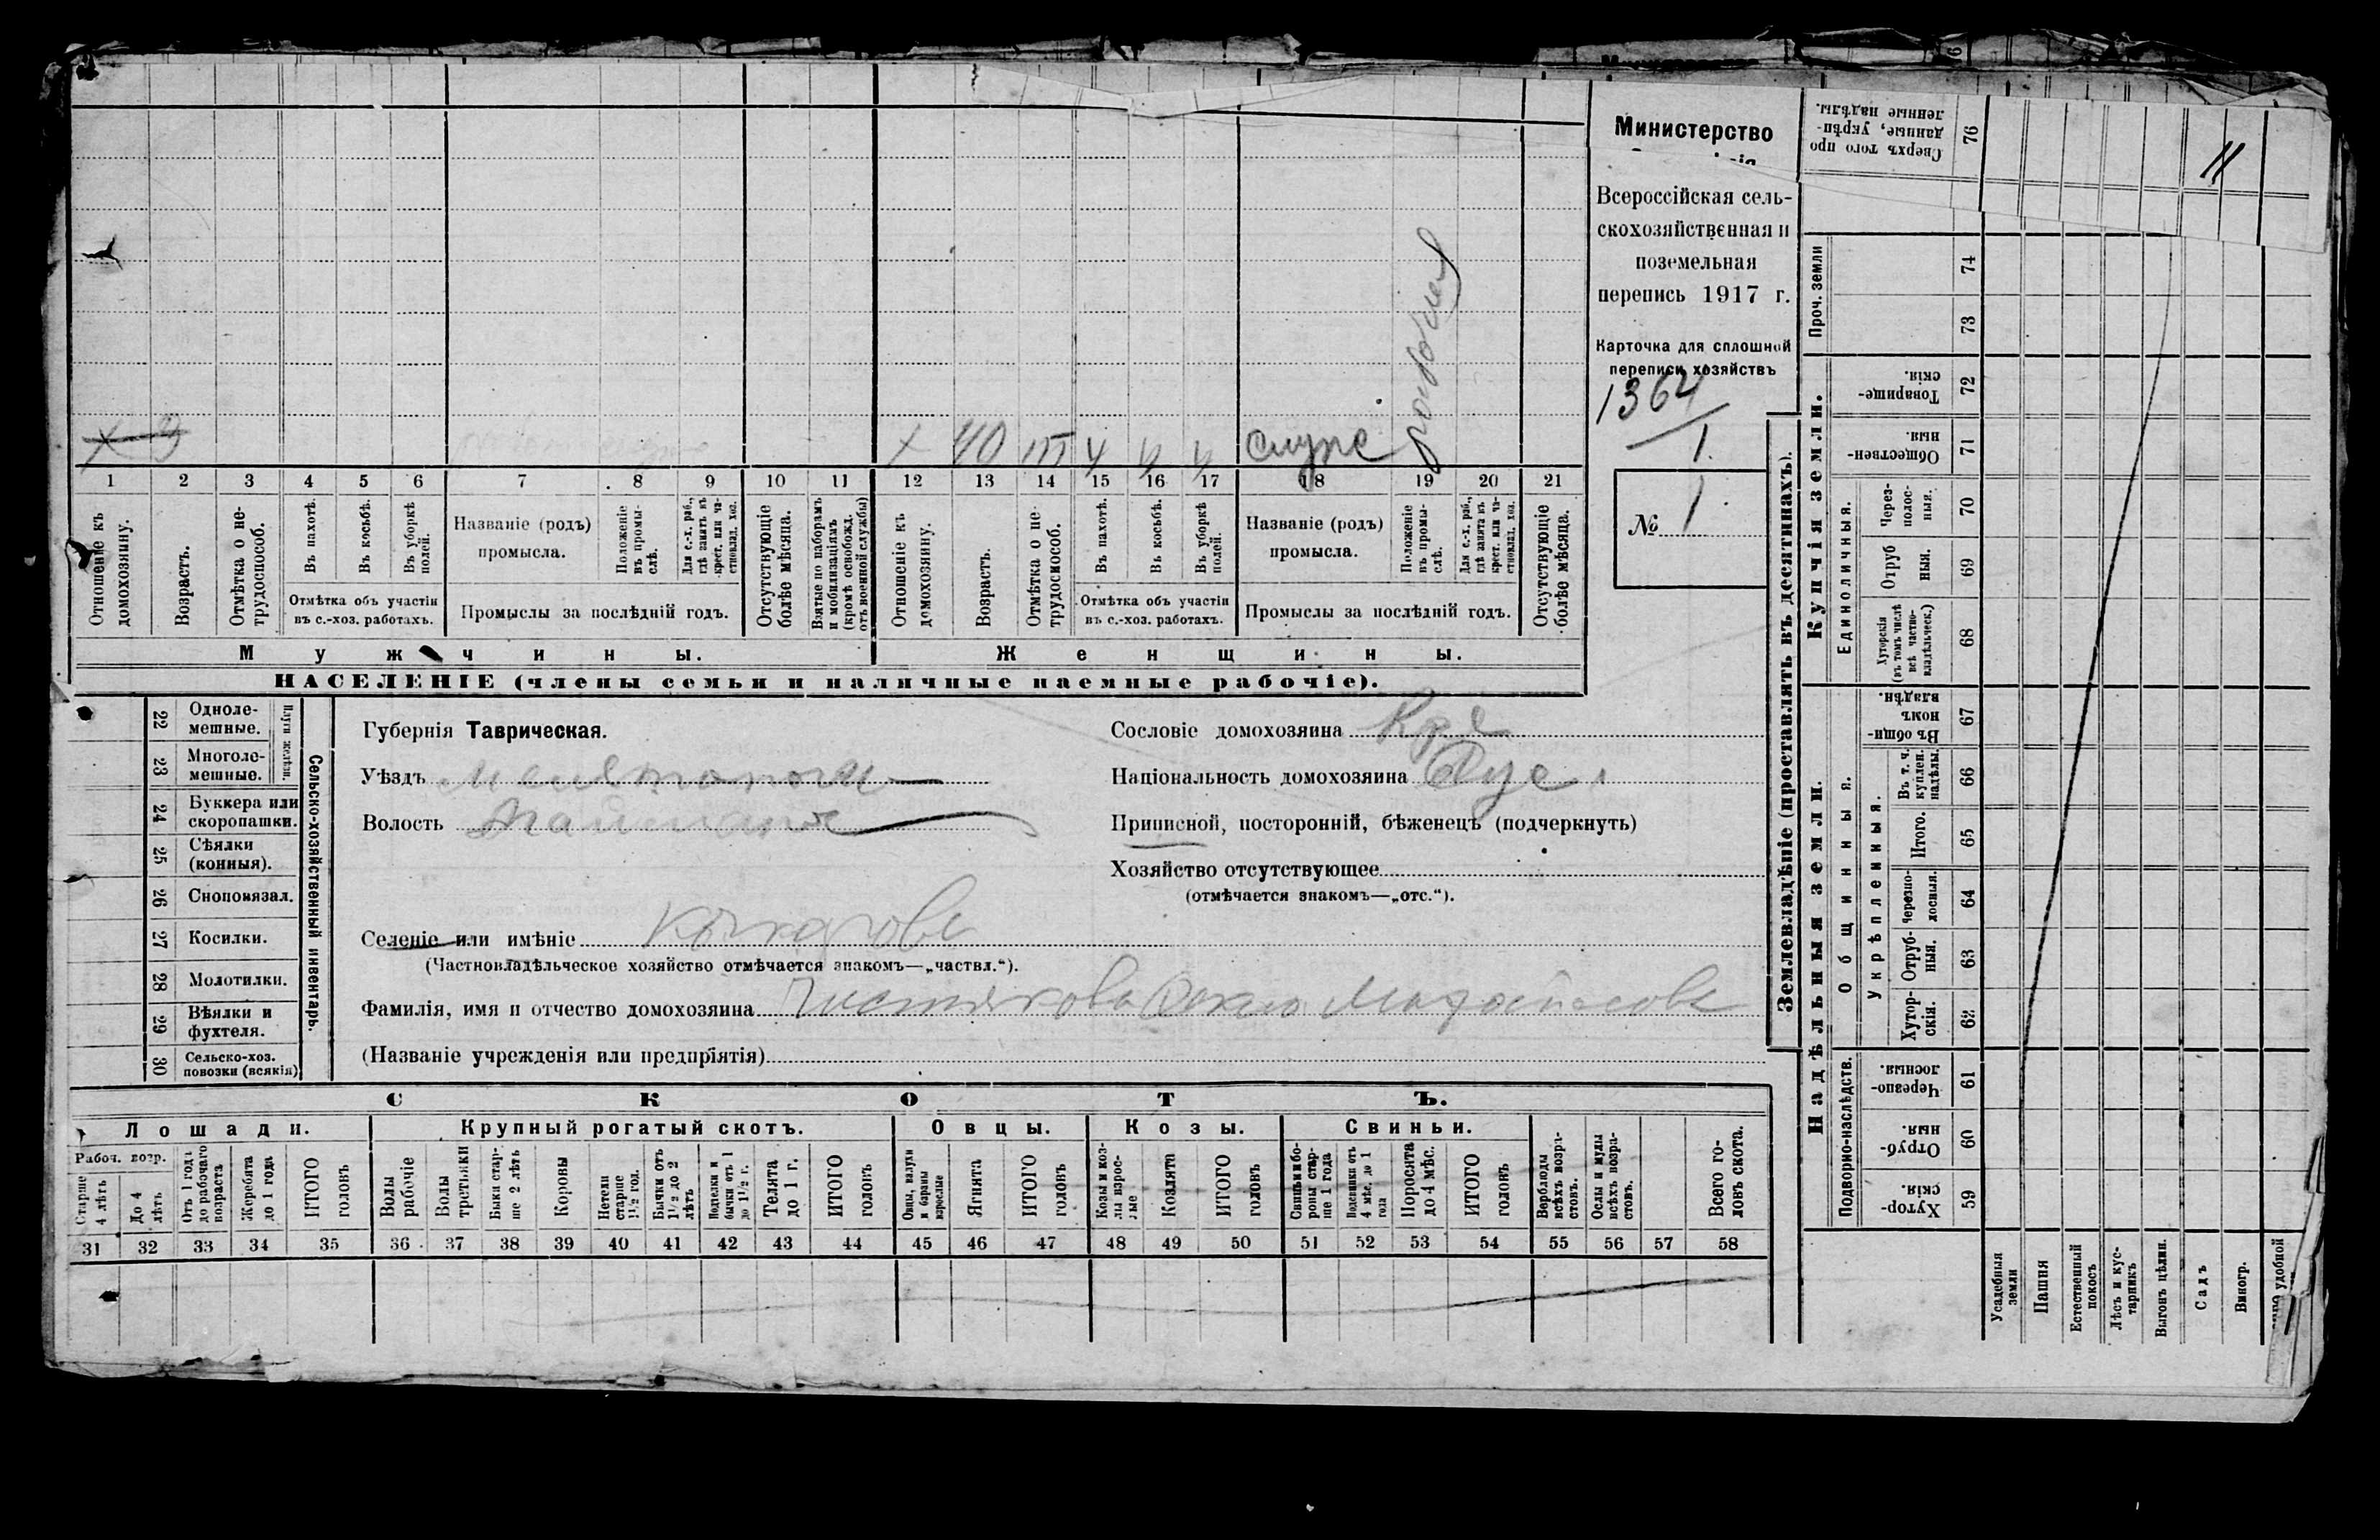 Министерство
Всероссійская сель-
скохозяйственная и
поземельная
перепись 1917 г.
Карточка для сплошной
переписи хозяйствъ
1364
1.
№ 1
х 9
х 40
1 2 3 4 5 6 7 8 9 10 11 12 13 14 15 16 17 18 19 20 21
Отношеніе къ домохозяину.
Возрастъ.
Отмѣтка о не-трудоспособ.
Въ пахотѣ.
Въ косьбѣ.
Въ уборкѣ полей.
Отмѣтка объ участіи
въ с.-хоз. работахъ.
Названіе (родъ)
промысла.
Положеніе въ промы-слѣ.
Для с.-х. раб., гдѣ занятъ въ крест. или ча-стновлад. хоз.
Промыслы за послѣдній годъ.
Отсутствующіе болѣе мѣсяца.
Взятые по наборамъ и мобилизаціямъ (кромѣ освобожд. отъ военной службы)
Отношеніе къ домохозяину.
Возрастъ.
Отмѣтка о не-трудоспособ.
Въ пахотѣ.
Въ косьбѣ.
Въ уборкѣ полей.
Отмѣтка объ участіи
въ с.-хоз. работахъ.
Названіе (родъ)
промысла.
Положеніе въ промы-слѣ.
Для с.-х. раб., гдѣ занята въ крест. или ча-стновлад. хоз.
Промыслы за послѣдній годъ.
Отсутствующіе болѣе мѣсяца.
Мужчины.
Женщины.
НАСЕЛЕНІЕ (члены семьи и наличные наемные рабочіе).
22 Одноле-мешные.
23 Многоле-мешные.
Плуги желѣзн.
24 Буккера или скоропашки.
25 Сѣялки (конныя).
26 Сноповязал.
27 Косилки.
28 Молотилки.
29 Вѣялки и фухтеля.
30 Сельско-хоз. повозки (всякія)
Сельско-хозяйственный инвентарь.
Губернія Таврическая.
Уѣздъ
Волость
Селеніе или имѣніе
(Частновладѣльческое хозяйство отмѣчается знакомъ—„частвл.“).
Фамилія, имя и отчество домохозяина Чистякова
(Названіе учрежденія или предпріятія)
Сословіе домохозяина
Національность домохозяина Рус
Приписной, посторонній, бѣженецъ (подчеркнуть)
Хозяйство отсутствующее
(отмѣчается знакомъ—„отс.“).
СКОТЪ.
Лошади. Крупный рогатый скотъ. Овцы. Козы. Свиньи.
Рабоч. возр.
Старше 4 лѣтъ
До 4 лѣтъ
Отъ 1 года до рабочаго возраста
Жеребята до 1 года
ИТОГО головъ
Волы рабочіе
Волы третьяки
Быки стар-ше 2 лѣтъ
Коровы
Нетели старше 1½ год.
Бычки отъ 1½ до 2 лѣтъ
бычки отъ 1 до 1½ г.
Телята до 1 г.
ИТОГО головъ
Овцы, валухи и бараны взрослые
Ягнята
ИТОГО головъ
Козы и коз-лы взрос-лые
Козлята
ИТОГО головъ
Свиньи и бо-ровы стар-ше 1 года
Подсвинки отъ 4 мѣс. до 1 года
Поросята до 4 мѣс.
ИТОГО головъ
Верблюды всѣхъ возра-стовъ.
Ослы и мулы всѣхъ возра-стовъ.
Всего го-ловъ скота.
31 32 33 34 35 36 37 38 39 40 41 42 43 44 45 46 47 48 49 50 51 52 53 54 55 56 57 58
Землевладѣніе (проставлять въ десятинахъ).
Надѣльныя земли.
Купчія земли.
Проч. земли
Подворно-наслѣдств.
Общинныя.
Укрѣпленныя.
Единоличныя.
Сверхъ того про данные, укрѣп-ленные надѣлы. 76
74
73
Товарище-скія. 72
Обществен-ныя 71
Через-полос-ныя. 70
Отруб ныя. 69
Хуторскія (въ томъ числѣ всѣ частно-владѣльческ.) 68
Въ общи-номъ владѣн. 67
Въ т. ч. куплен. надѣлы. 66
Итого. 65
Черезпо-лосныя. 64
Отруб-ныя. 63
Хутор-скія. 62
Черезпо-лосныя. 61
Отруб-ныя. 60
Хутор-скія. 59
Усадебныя земли
Пашня
Естественный покосъ
Лѣсъ и кус-тарникъ
Выгонъ цѣлин.
Садъ
Виногр.
удобной